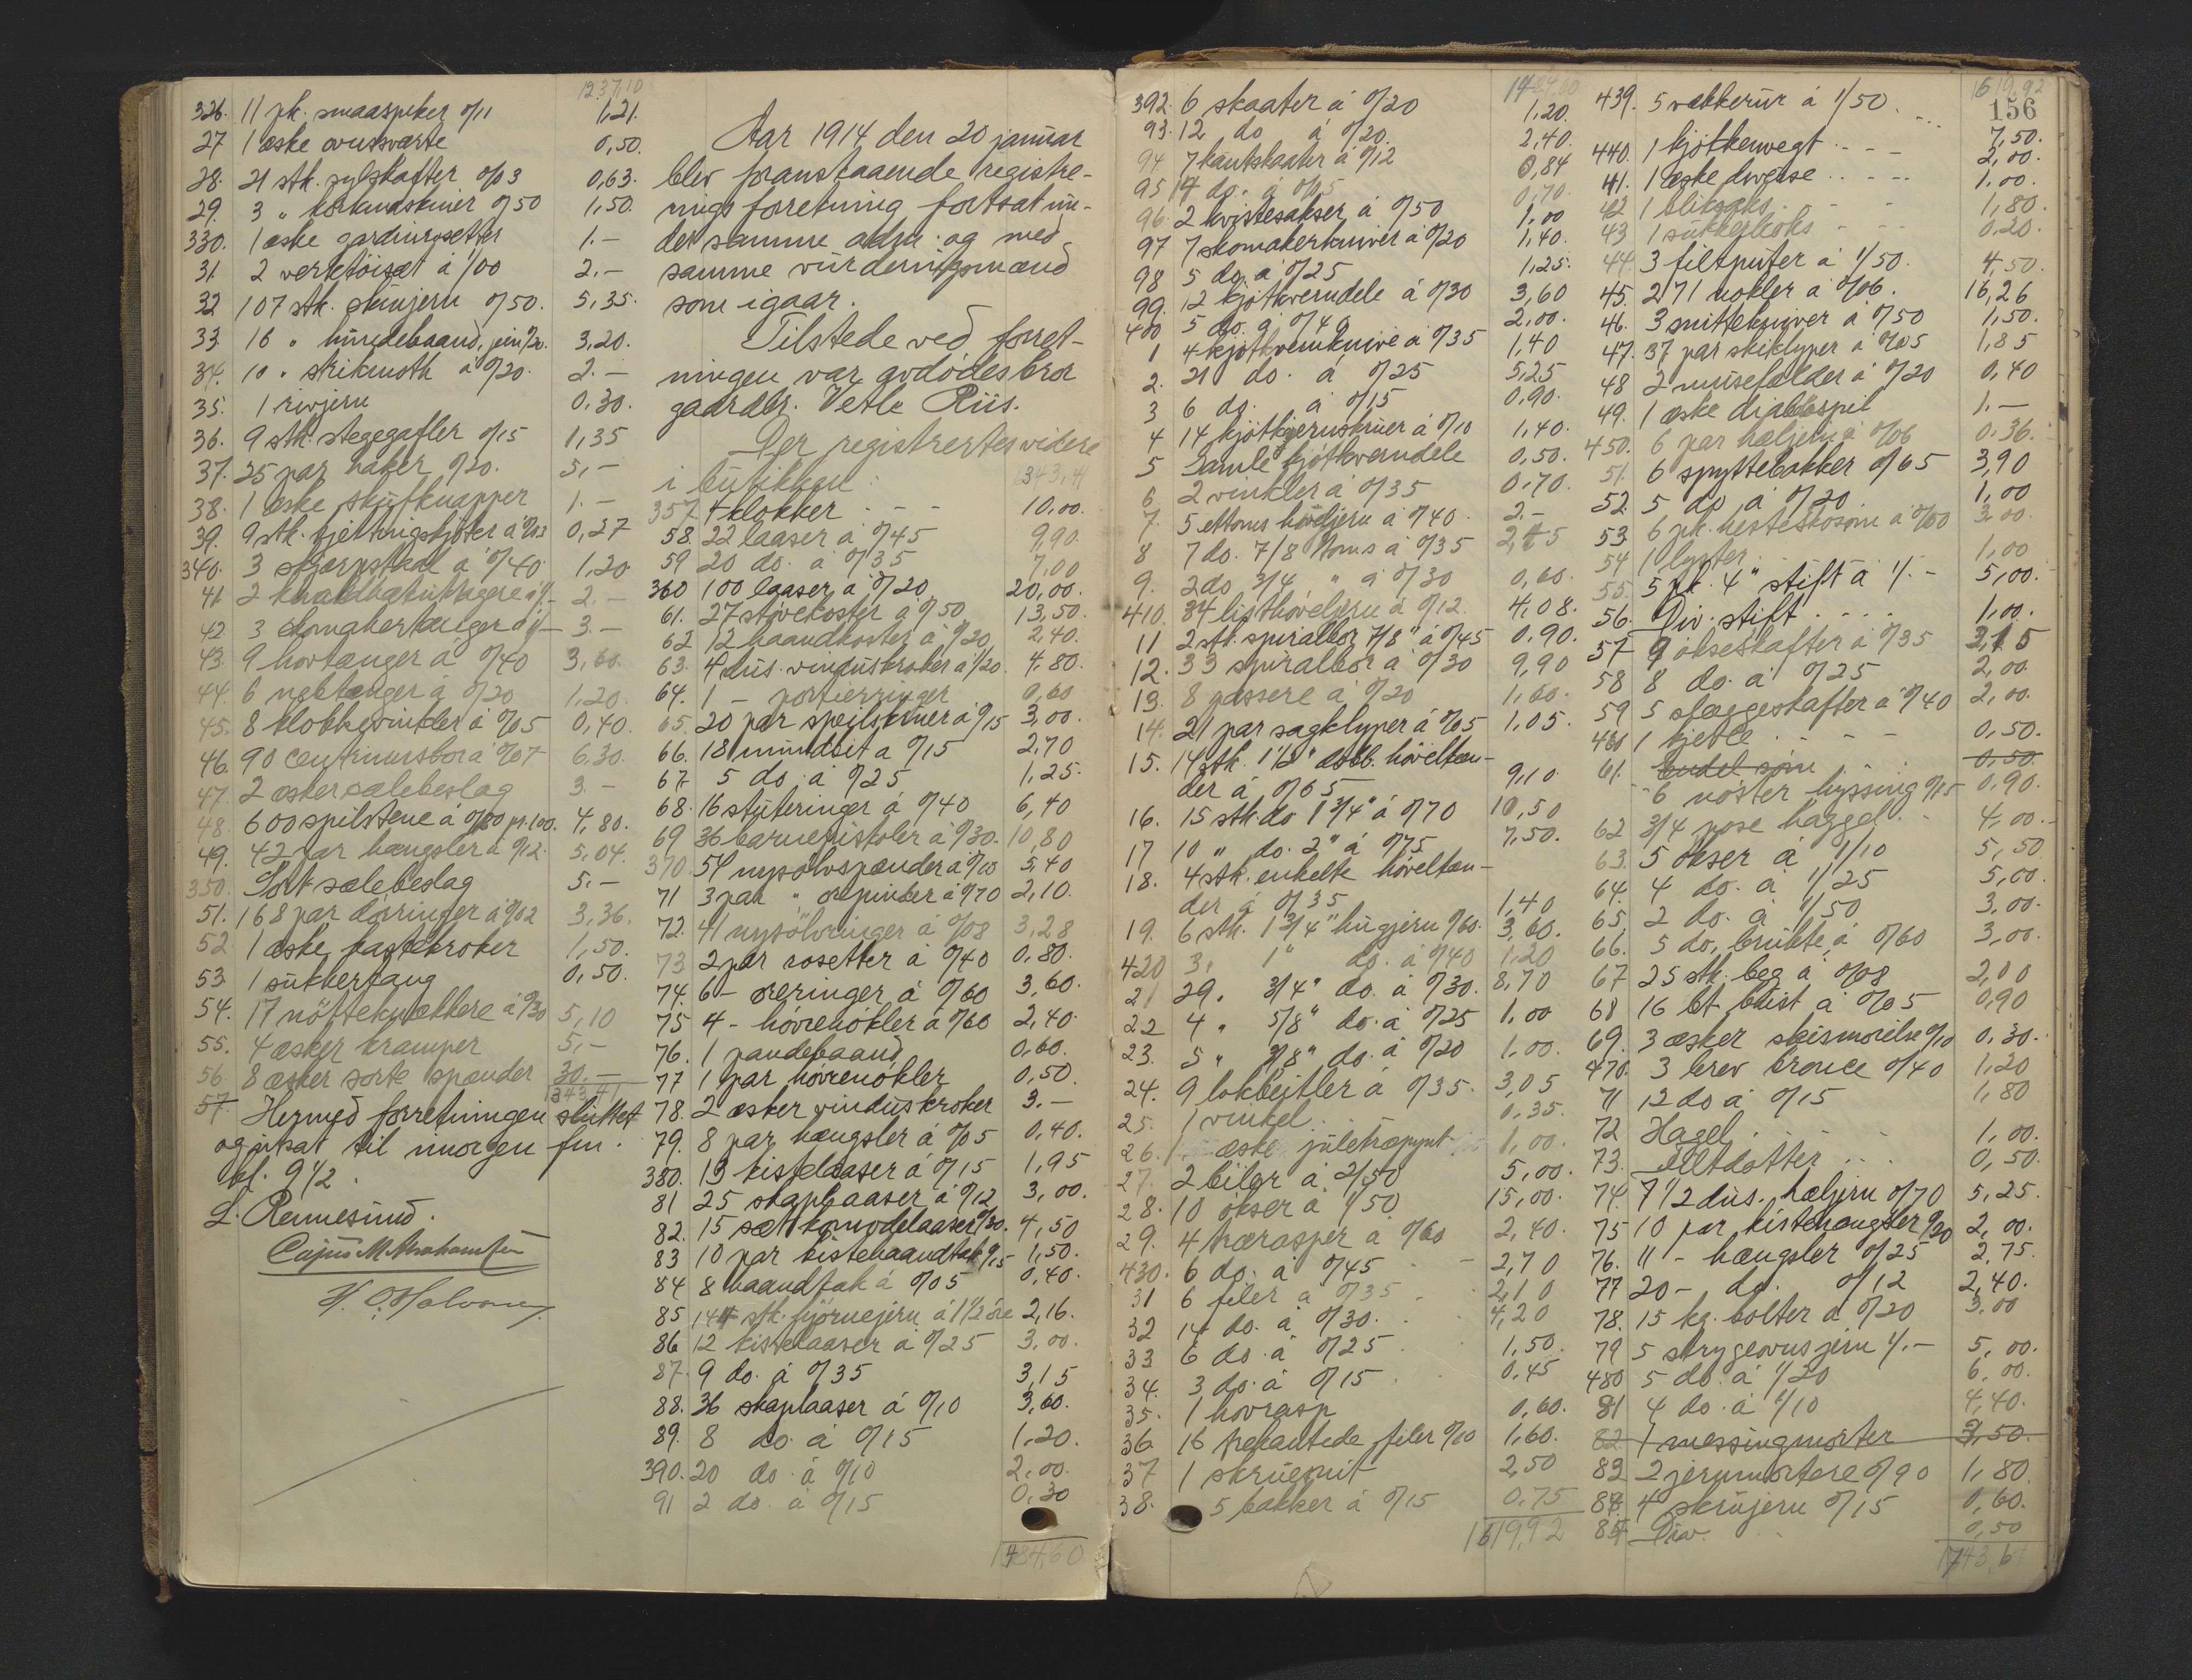 1237,10
326. 11 pk. smaaspiker 0/11 1,21.
27 1 æske ovnssværte 0,50.
28. 21 stk. sylskafter 0/03 0,63.
29. 3 " 0/50 1,50.
330. 1 æske gardinrosetter 1.-
31 2 verktöisæt à 1/00 2.-
32 107 stk. skinjern 0/50. 5,35.
33 16 " hundebaand, 0/20. 3,20.
34. 10 " à 0/20. 2.-
35. 1 rivjern 0,30.
36. 9 stk. stegegafler 0/15 1,35
37. 25 par haker 0/20. 5,-
38. 1 æske skufknapper 1.-
39. 9 stk. à 0/03 0,27
340. 3 à 0/40 1,20
41 2 à 1/- 2.-
42 3 skomakertænger à 1/- 3.-
43. 9 hovtænger à 0/40 3,60.
44. 6 à 0/20 1,20.
45. 8 blokkvinkler à 0/05 0,40.
46. 90 centrumsbor à 0/07 6.30.
47. 2 æsker sælebeslag 3.-
48. 600 spilstene à 0/80 pr. 100. 4,80.
49. 42 par hængsler à 0/12. 5,04.
350. Sort sælebeslag 5.-
51. 168 par dørringer à 0/02 3,36.
52 1 æske kastekroker 1,50.
53 1 sukkertang 0,50.
54. 17 nötteknækkere à 0/30 5,10
55. 4 æsker kramper 5,-
56. 8 æsker sorte spænder 30.-
1343,41
57. Hermed forretningen sluttet
og utsat til imorgen fm.
kl. 9 1/2.
L. Rennesund.
Aar 1914 den 20 januar
blev foranstaaende registre-
ringsforretning fortsat un-
der samme adm. og med
samme vurderingsmænd
som igaar.
Tilstede ved forret-
ningen var avdödes bror
gaardbr. Vetle Riis.
Der registrertes videre
i butikken: 1343,41
357. 4 klokker - - - 10,00.
58. 22 laaser à 0/45 9,90.
59 20 do. à 0/35 7,00
360 100 laaser à 0/20 20,00.
61. 27 støvekoster à 0/50 13,50.
62 12 haandkoster à 0/20 2,40.
63. 4 dus. vinduskroker à 1/20. 4,80.
64. 1 - portierringer 0,60
65. 20 par speilskruer à 0/15 3,00.
66. 18 mundbit à 0/15 2,70
67. 5 do. à 0/25 1,25.
68. 16 stuteringer à 0/40 6,40
69 36 barnepistoler à 0/30. 10,80
370. 54 nysölvspænder à 0/10 5,40
71 3 par " örepinder à 0/70 2,10.
72. 41 nysölvringer à 0/08 3,28
73 2 par rosetter à 0/40 0,80.
74. 6 - øreringer à 0/60 3,60.
75 4 - hövrenökler à 0/60 2,40.
76. 1 pandebaand 0,60.
77 1 par hövrenökler 0,50.
78. 2 æsker vinduskroker 3.-
79. 8 par hængsler à 0/05 0,40.
380. 13 kistelaaser à 0/15 1,95
81 25 skaplaaser à 0/12 3,00.
82. 15 sæt komodelaaser 0/30. 4,50
83 10 par kistehaandtak 0/15 1,50.
84 8 haandtak à 0/05 0,40.
85 144 stk. hjörnejern à 1 1/2 öre 2,16.
86 12 kistelaaser à 0/25 3,00.
87. 9 do. à 0/35 3,15
88. 36 skaplaaser à 0/10 3,60.
89. 8 do. à 0/15 1,20.
390. 20 do. à 0/10 2,00.
91 2 do. à 0/15 0,30
1484,60
156
392. 6 skaater à 0/20 1,20.
93. 12 do à 0/20. 2,40.
94 7 kantskaater à 0/12 0,84
95 14 do. à 0/05 0,70.
96. 2 kvistesakser à 0/50 1,00
97 7 skomakerkniver à 0/20 1,40.
98 5 do. à 0/25 1,25.
99. 12 kjötkverndele à 0/30 3,60
400 5 do. à 0/40 2,00.
1 4 kjötkvernknive à 0/35 1,40
2. 21 do. à 0/25 5,25
3 6 do. à 0/15 0,90.
4 14 kjötkvernskruer à 0/10 1,40.
5 Samle kjötkverndele 0,50.
6. 2 vinkler à 0/35 0,70.
7. 5 ettoms hövljern à 0/40. 2,-
8 7 do. 7/8 toms à 0/35 2,45
9. 2 do 3/4 " à 0/30 0,60.
410. 34 listhöveljern à 0/12. 4,08.
11 2 stk. spiralbor 7/8" à 0/45 0,90.
12. 33 spiralbor à 0/30 9,90
13. 8 passere à 0/20 1,60.
14. 21 par sagklyper à 0/05 1,05.
15. 14 stk. 1 1/2" dobb. höveltæn-
der à 0/65 9,10
16. 15 stk. do 1 3/4" à 0/70 10,50
17 10 " do. 2" à 0/75 7,50.
18. 4 stk. enkelte höveltæn-
der à 0/35 1,40
19. 6 stk. 1 3/4" hugjern 0/60. 3,60.
420 3. 1" do. à 0/40 1,20
21 29. 3/4" do. à 0/30. 8,70
22 4 " 5/8" do. à 0/25 1,00
23. 5 " 3/8" do. à 0/20 1,00.
24. 9 lokbeitler à 0/35. 3,05
25. 1 vinkel 0,35.
26. 1 æske juletræpynt 1,00.
27. 2 biler à 2/50 5,00.
28. 10 økser à 1/50 15,00.
29. 4 trærasper à 0/60 2,40.
430. 6 do. à 0/45 2,70
31 6 filer à 0/35 2,10
32 14 do. à 0/30. 4,20
33 6 do. à 0/25 1,50.
34. 3 do. à 0/15 0,45
35. 1 hovrasp 0,60.
36. 16 trekantede filer 0/10 1,60.
37 1 skruepit 2,50
38. 5 bakker à 0/15 0,75
1619,92
1619,92
439. 5 vækkerur à 1/50 7,50.
440. 1 kjökkenvegt 2,00.
41. 1 æske diverse 1,00.
42 1 bliksaks 1,80.
43 1 sukkerboks 0,20.
44. 3 filtputer à 1/50. 4,50.
45. 271 nökler à 0/06. 16,26
46. 3 snittekniver à 0/50 1,50.
47. 37 par skiklyper à 0/05 1,85
48 2 musefælder à 0/20 0,40
49. 1 æske djaboospil 1.-
450. 6 par hæljern à 0/06 0,36.
51. 6 spyttebakker 0/65 3,90
52. 5 do à 0/20. 1,00
53 6 pk. hesteskosöm à 0/50 3,00.
54 1 lyster 1,00
55. 5 pk. 4" stift à 1.- 5,00.
56. Div. stift 1,00.
57 9 økseskafter à 0/35 3,15
58 8 do. à 0/25 2,00
59 5 slæggeskafter à 0/40 2,00.
460 1 kjetle 0,50.
61. endel söm 0,50.
6 nöster hyssing 0/15 0,90.
62 3/4 pose haggel 4,00.
63. 5 økser à 1/10 5,50
64. 4 do. à 1/25 5,00.
65. 2 do. à 1/50 3,00.
66. 5 do. brukte à 0/60 3,00.
67 25 stk. beg à 0/08 2,00
68 16 bt. blist à 0/05 0,90
69. 3 æsker skismörelse 0/10 0,30.
470. 3 brev bronce 0/40 1,20
71 12 do à 0/15 1,80
72 Hagel 1,00.
73. Filtdotter 0,50.
74. 7 1/2 dus. hæljern 0/70 5,25.
75 10 par kistehængsler 0/20 2,00.
76. 11 - hængsler 0/25 2,75.
77 20 - do. 0/12 2,40.
78. 15 kg. bolter à 0/20 3,00
79 5 strygeovnsjern 1/.- 5,00.
480 5 do. à 1/20 6,00.
81 4 do. à 1/10 4,40.
82. 1 messingmorter 3,50.
83 2 jernmortere 0/90 1,80.
84. 4 skrujern 0/15 0,60.
85 Div. 0,50
1743,61